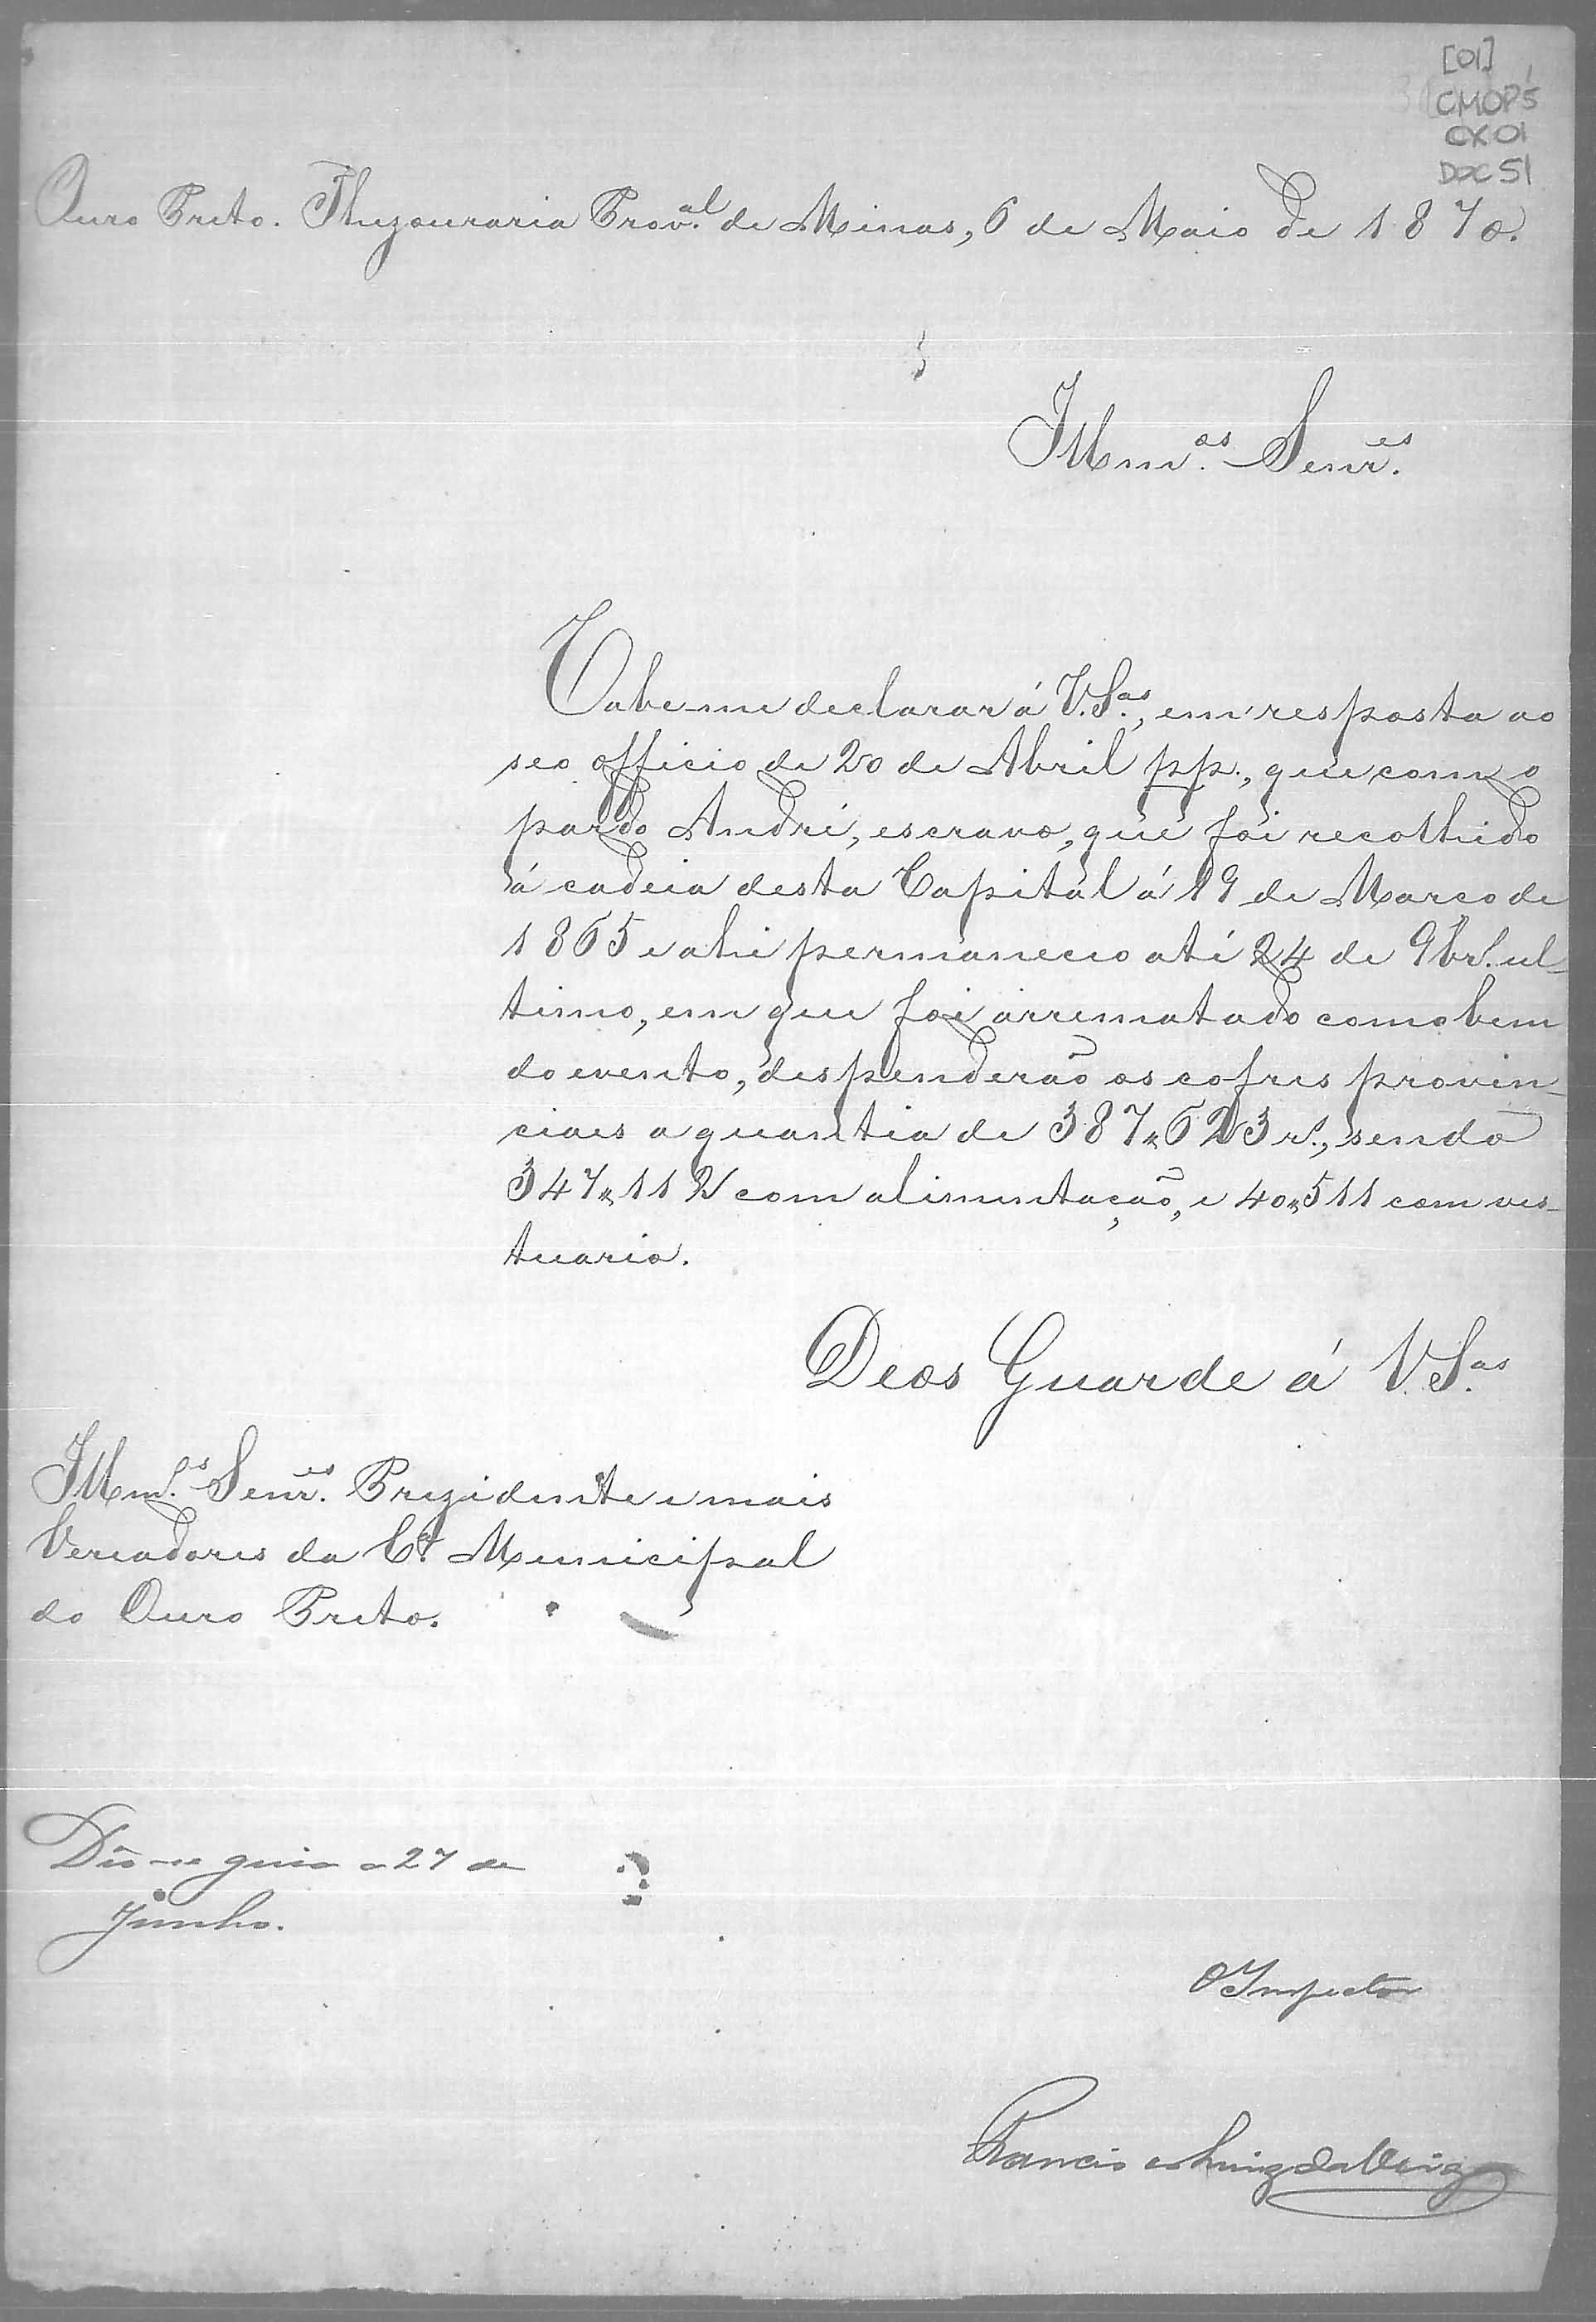 [01]
CMOP5
CX01
DOC51
Ouro Preto. Thezouraria Prov.al de Minas, 6 de Maio de 1870.
Illm.os Senr.es
Cabe-me declarar á V.S.as, em resposta ao
seo officio de 20 de Abril pp., que com o
pardo André, escravo, que foi recolhido
á cadeia desta Capital á 19 de Março de
1865 e ahi permaneceo até 24 de 9br.º ul-
timo, em que foi arrematado como bem
do evento, despenderão os cofres provin-
ciaes a quantia de 387"623 rs., sendo
347"112 com alimentação, e 40"511 com ves-
tuario.
Deos Guarde á V.S.as
Illm.os Senr.es Prezidente e mais
Vereadores da C.ª Municipal
do Ouro Preto.
Deo-se guia a 27 de
Junho.
O Inspector
Francisco Luiz da Veiga